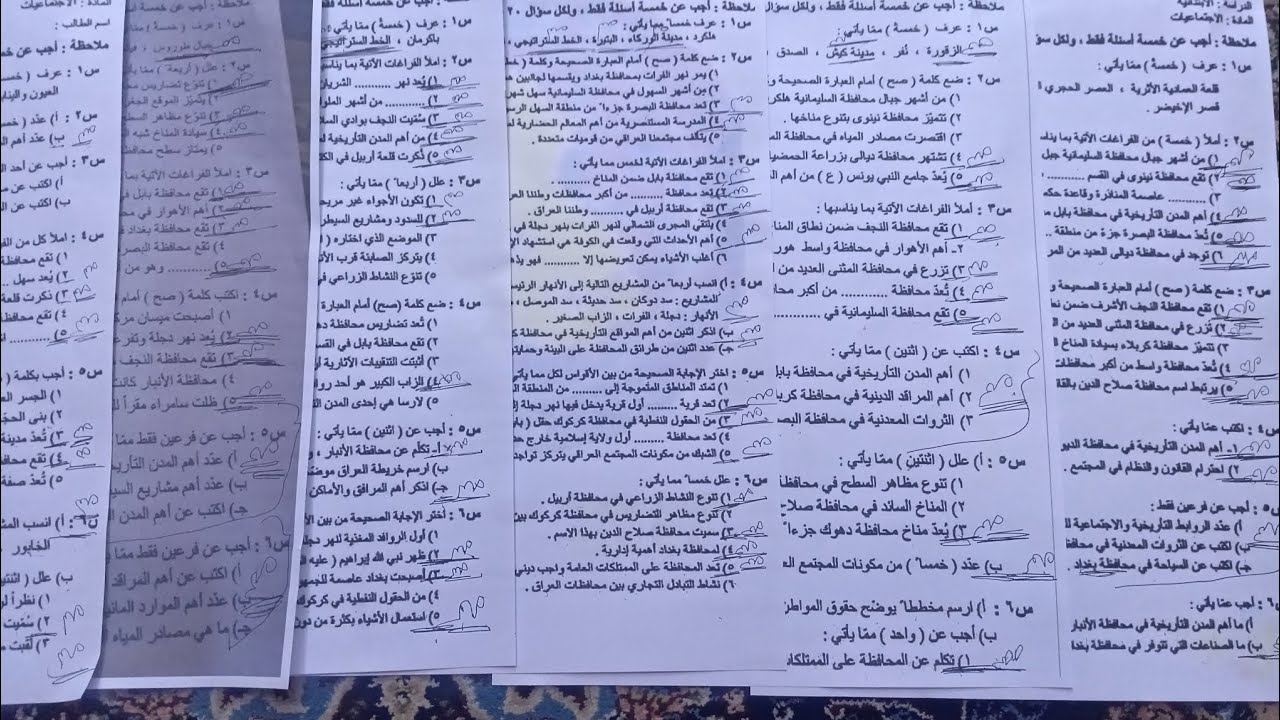 المادة : الاجتماعيات
ملاحظة : أجب عن خمسة أسئلة فقط، ولكل سؤ
س١ : عرف ( خمسة ) ممّا يأتي :
قلعة العمادية الأثرية ، العصر الحجري
قصر الإخيضر .
س٢ : أملأ ( خمسة ) من الفراغات الآتية بما يناس
١) من أشهر جبال محافظة السليمانية جبل
٢) تقع محافظة نينوى في القسم ............
٣) ............ عاصمة المناذرة وقاعدة حكم
٤) أهم المدن التأريخية في محافظة بابل
٥) تُعدّ محافظة البصرة جزءً من منطقة ..
٦) توجد في محافظة ديالى العديد من المر
س٣ : ضع كلمة ( صح ) أمام العبارة الصحيحة و
١) تقع محافظة النجف الأشرف ضمن نط
٢) تزرع في محافظة المثنى العديد من ا
٣) تتميّز محافظة كربلاء بسيادة المناخ ا
٤) تُعدّ محافظة واسط من أكبر محافظات
٥) يرتبط اسم محافظة صلاح الدين بالقا
س٤ : أكتب عمّا يأتي :
١ـ أهم المدن التأريخية في محافظة الديو
٢) احترام القانون والنظام في المجتمع .
س٥ : أجب عن فرعين فقط :
أ) عدّد الروابط التأريخية والاجتماعية لل
ب) اكتب عن الثروات المعدنية في محافظ
جـ) اكتب عن السياحة في محافظة بغداد .
س٦ : أجب عمّا يأتي :
أ) ما أهم المدن التأريخية في محافظة الأنبار
ب) ما الصناعات التي تتوفر في محافظة بغدا
ملاحظة : أجب عن خمسة أسئلة فقط، ولكل سؤال
س١ : عرف ( خمسة ) ممّا يأتي :
الزقورة ، نُفر ، مدينة كيش ، الصدق
س٢ : ضع كلمة ( صح ) أمام العبارة الصحيحة و
١) من أشهر جبال محافظة السليمانية هلكر
٢) تتميّز محافظة نينوى بتنوع مناخها .
٣) اقتصرت مصادر المياه في محافظة الس
٤) تشتهر محافظة ديالى بزراعة الحمضيا
٥) يُعدّ جامع النبي يونس ( ع ) من أهم الم
س٣ : أملأ الفراغات الآتية بما يناسبها :
١) تقع محافظة النجف ضمن نطاق المنا
٢ـ أهم الأهوار في محافظة واسط هور
٣) تزرع في محافظة المثنى العديد من
٤) تُعدّ محافظة ............ من أكبر محا
٥) تقع محافظة السليمانية في ............
س٤ : اكتب عن ( اثنين ) ممّا يأتي :
١) أهم المدن التأريخية في محافظة بابل
٢) أهم المراقد الدينية في محافظة كربا
٣) الثروات المعدنية في محافظة البص
س٥ : أ) علل ( اثنتين ) ممّا يأتي :
١) تنوع مظاهر السطح في محافظة
٢) المناخ السائد في محافظة صلاح
٣) يُعدّ مناخ محافظة دهوك جزءاً
ب) عدّد ( خمساً ) من مكونات المجتمع الع
س٦ : أ) ارسم مخططاً يوضح حقوق المواطن
ب) أجب عن ( واحد ) ممّا يأتي :
١) تكلم عن المحافظة على الممتلكات
ملاحظة : أجب عن خمسة أسئلة فقط، ولكل سؤال ٢٠
س١ : عرف خمساً مما يأتي :
هلكرد ، مدينة الوركاء ، البتيوة ، الخط الستراتيجي ،
س٢ : ضع كلمة ( صح ) أمام العبارة الصحيحة وكلمة ( خط
١) يمر نهر الفرات بمحافظة بغداد ويقسمها لجانبين
٢) من أشهر السهول في محافظة السليمانية سهل شهر
٣) تُعد محافظة البصرة جزءاً من منطقة السهل الرسو
٤) المدرسة المستنصرية من أهم المعالم الحضارية لم
٥) يتألف مجتمعنا العراقي من قوميات متعددة .
س٣ : املأ الفراغات الآتية لخمس مما يأتي :
١) تقع محافظة بابل ضمن المناخ ..........
٢) تُعد محافظة .......... من أكبر محافظات وطننا العر
٣) تقع محافظة أربيل في .......... وطننا العراق .
٤) يلتقي المجرى الشمالي لنهر الفرات بنهر دجلة في
٥) أهم الأحداث التي وقعت في الكوفة هي استشهاد الإ
٦) أغلب الأشياء يمكن تعويضها إلا .......... فهو يذه
س٤ : أ) انسب أربعاً من المشاريع التالية إلى الأنهار الرئيس
المشاريع : سد دوكان ، سد حديثة ، سد الموصل ،
الأنهار : دجلة ، الفرات ، الزاب الصغير .
ب) اذكر اثنين من أهم المواقع التأريخية في محافظة ك
جـ) عدد اثنين من طرائق المحافظة على البيئة وحمايتها
س٥ : اختر الإجابة الصحيحة من بين الأقواس لكل مما يأتي
١) تمتد المناطق المتموجة إلى .......... من المنطقة ال
٢) تعد قرية .......... أول قرية يدخل فيها نهر دجلة إ
٣) من الحقول النفطية في محافظة كركوك حقل ( باي
٤) تعد محافظة .......... أول ولاية إسلامية خارج حد
٥) الشبك من مكونات المجتمع العراقي يتركز تواجد
س٦ : علل خمساً مما يأتي :
١) تنوع النشاط الزراعي في محافظة أربيل .
٢) تنوع مظاهر التضاريس في محافظة كركوك بين
٣) سميت محافظة صلاح الدين بهذا الاسم .
٤) لمحافظة بغداد أهمية إدارية .
٥) تُعد المحافظة على الممتلكات العامة واجب ديني
٦) نشاط التبادل التجاري بين محافظات العراق .
ملاحظة : أجب عن خمسة أسئلة فقط، ولكل
س١ : عرف ( خمسة ) ممّا يأتي :
باكرمان ، الخط الستراتيجي
س٢ : املأ الفراغات الآتية بما يناسب
١) يُعد نهر ............ الشريان
٢) ............ من أشهر الملو
٣) سُمّيت النجف بوادي السلا
٤) من أهم المدن التأريخية
٥) ذكرت قلعة أربيل في الكتا
س٣ : علل ( أربعاً ) ممّا يأتي :
١) تكون الأجواء غير مريح
٢) للسدود ومشاريع السيطر
٣) الموضع الذي اختاره (
٤) يتركز الصابئة قرب الأ
٥) تنوّع النشاط الزراعي في
س٤ : ضع كلمة (صح) أمام العبارة
١) تُعد تضاريس محافظة ده
٢) تقع محافظة بابل في القس
٣) أثبتت التنقيبات الآثارية أ
٤) الزاب الكبير هو أحد رو
٥) لارسا هي إحدى المدن الت
س٥ : أجب عن ( اثنين ) ممّا يأتي :
أـ تكلّم عن محافظة الأنبار ، و
ب) ارسم خريطة العراق موضّ
جـ) اذكر أهم المرافق والأماكن
س٦ : أختر الإجابة الصحيحة من بين الأ
١) أول الروافد المغذية لنهر دجل
٢) ظهر نبي الله إبراهيم ( عليه الس
٣) أصبحت بغداد عاصمة للجمهو
٤) من الحقول النفطية في كركوك
٥) استعمال الأشياء بكثرة من دون
س١ : عرف ( خمسة ) ممّا يأتي
جبال طوروس ،
س٢ : علل ( أربعة ) ممّا يأتي
١) تنوّع تضاريس مح
٢) يتميّز الموقع الجغر
٣) تنوّع مظاهر السط
٤) سيادة المناخ شبه ا
٥) يمتاز سطح محافظ
س٣ : املأ الفراغات الآتية بما
١) تقع محافظة بابل ف
٢) أهم الأهوار في مح
٣) تقع محافظة بغداد
٤) تقع محافظة البصر
٥) ............ وهو من
س٤ : اكتب كلمة ( صح ) أمام
١) أصبحت ميسان مرك
٢) يُعد نهر دجلة وتفرع
٣) تقع محافظة النجف
٤) محافظة الأنبار كانت
٥) ظلت سامراء مقراً لل
س٥ : أجب عن فرعين فقط ممّا
أ) عدّد أهم المدن التأريخ
ب) عدّد أهم مشاريع السي
جـ) اكتب عن أهم المدن ال
س٦ : أجب عن فرعين فقط ممّا
أ) اكتب عن أهم المراقد
ب) عدّد أهم الموارد المائ
جـ) ما هي مصادر المياه ا
المادة : الاجتماعيات
اسم الطالب :
ملاحظة : أجب عن خمسة
س١ : عرف ( خمسة )
العيون والينابي
س٢ : أ) عدّد ( خمس
ب) عدّد أهم
س٣ : أجب عن أحد ال
أ) اكتب عن
ب) اكتب عن
س٤ : املأ كل من الفر
١) تقع محافظة
٢) يُعد سهل
٣) ذكرت قلعة
٤) تقع محافظة
٥)
س٥ : أجب بكلمة (
١) الجسر الم
٢) بنى الخ
٣) تُعدّ مدينة
٤) تقع محافظ
٥) تُعدّ صفة
س٦ : أ) انسب المش
الخابور
ب) علل ( اثنتين
١) نظراً لو
٢) سُمّيت
٣) لُقبت